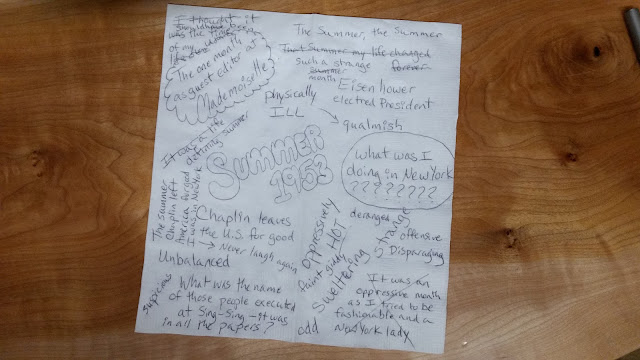 I thought it
was the time
of my
life
The one month
as guest editor at
Mademoiselle
The Summer, the Summer
That Summer my life changed
forever
such a strange
summer
month
Eisenhower
electred President
physically
ILL
qualmish
It was a life
defining summer
SUMMER
1953
what was I
doing in New York
????????
The summer
Chaplin left
America forever
I was in New York
Chaplin leaves
the U.S. for good
→ Never laugh again
Unbalanced
suspicious
What was the name
of those people executed
at Sing-Sing - it was
in all the papers?
oppressively
HOT
faint giddy
sweltering
odd
deranged
strange
offensive
Disparaging
It was an
oppressive month
as I tried to be
fashionable and a
New York lady